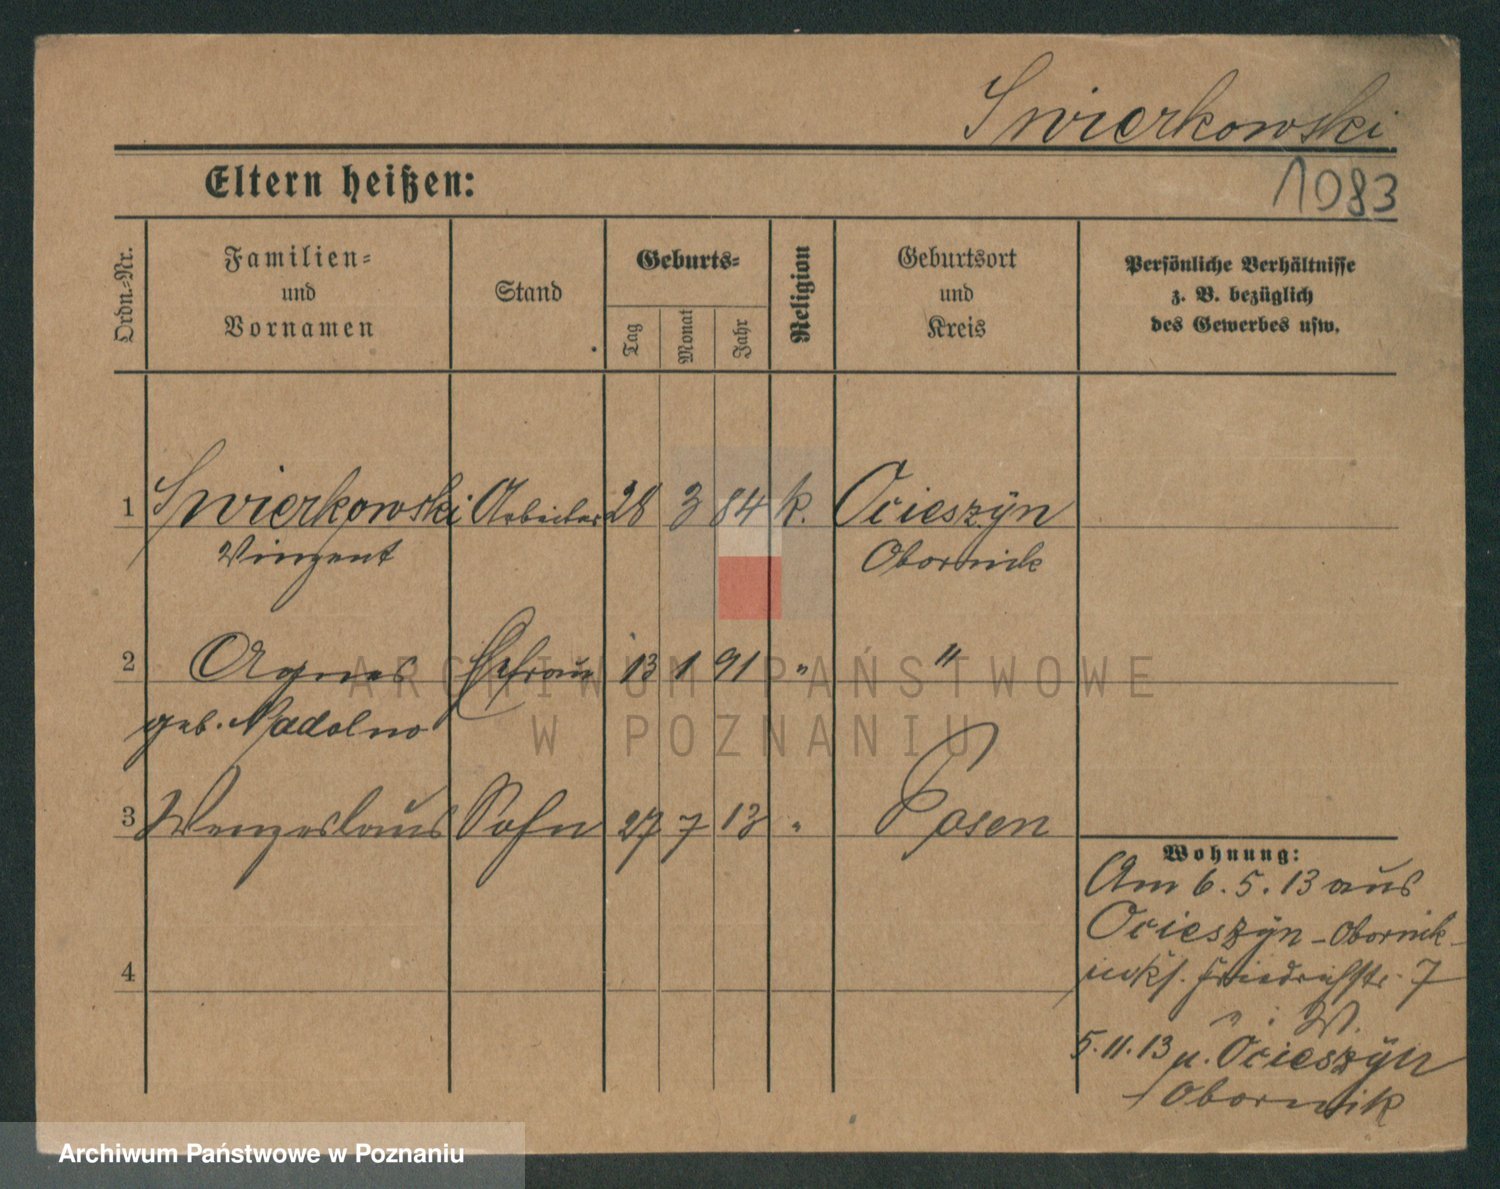 Swierkowski
1083
Eltern heißen:
Ordn.-Nr.
Familien-
und
Vornamen
Stand
Geburts-
Tag
Monat
Jahr
Religion
Geburtsort
und
Kreis
Persönliche Verhältnisse
z. B. bezüglich
des Gewerbes usw.
1 Swierkowski Arbeiter 28 3 84 k. Ocieszyn
Vinzent Obornik
2 Agnes Ehefrau 13 1 91 " "
geb. Nadolno
3 Wenzeslaus Sohn 27 7 13 " Posen
4
Wohnung:
Am 6.5.13 aus
Ocieszyn - Obornik -
Friedrichstr. 7
W.
5.11.13 n. Ocieszyn
Obornik
ARCHIWUM PAŃSTWOWE
W POZNANIU
Archiwum Państwowe w Poznaniu